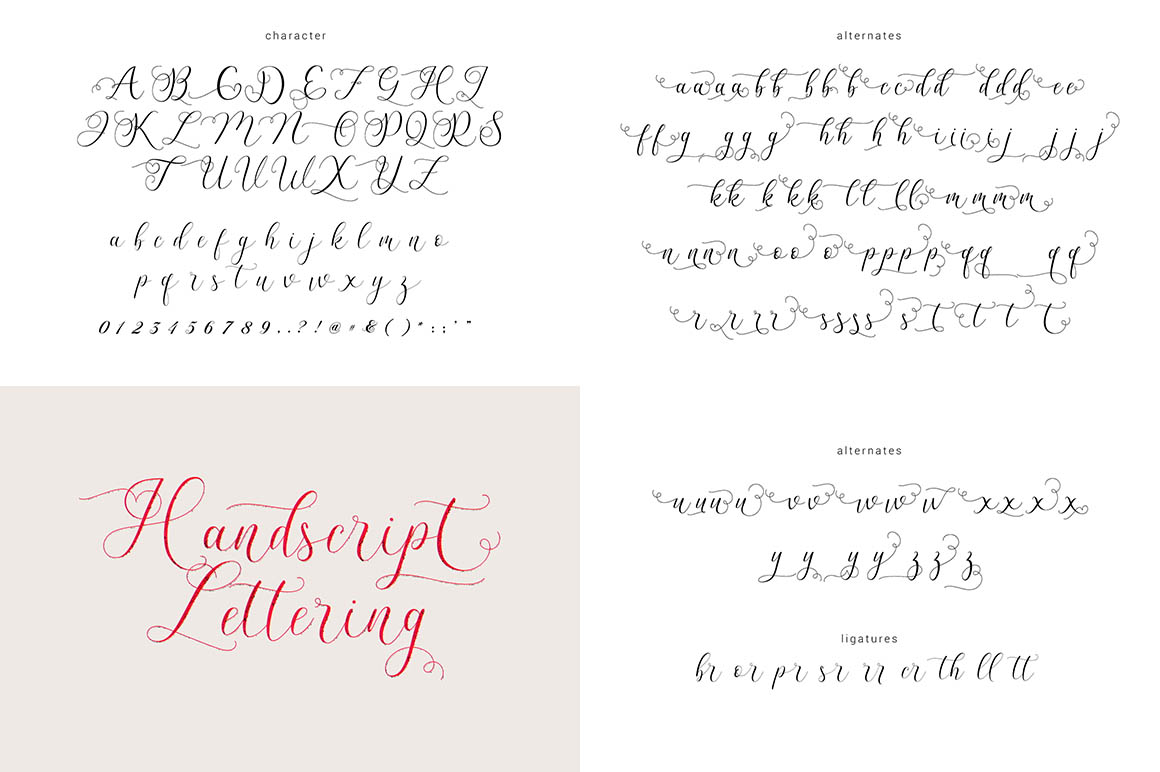 character
A B C D E F G H I
J K L M N O P Q R S
T U V W X Y Z
a b c d e f g h i j k l m n o
p q r s t u v w x y z
0 1 2 3 4 5 6 7 8 9 . , ? ! @ # & ( ) * : ; ' "
alternates
a a a a b b b b b c c d d d d d e e
f f g g g g h h h h i i i i j j j j
k k k k k l l l l m m m m
n n n n o o o p p p p q q q q
r r r r r s s s s s t t t t
Handscript
Lettering
alternates
u u u u v v w w w x x x x
y y y y z z z
ligatures
br or pr sr rr cr th ll tt